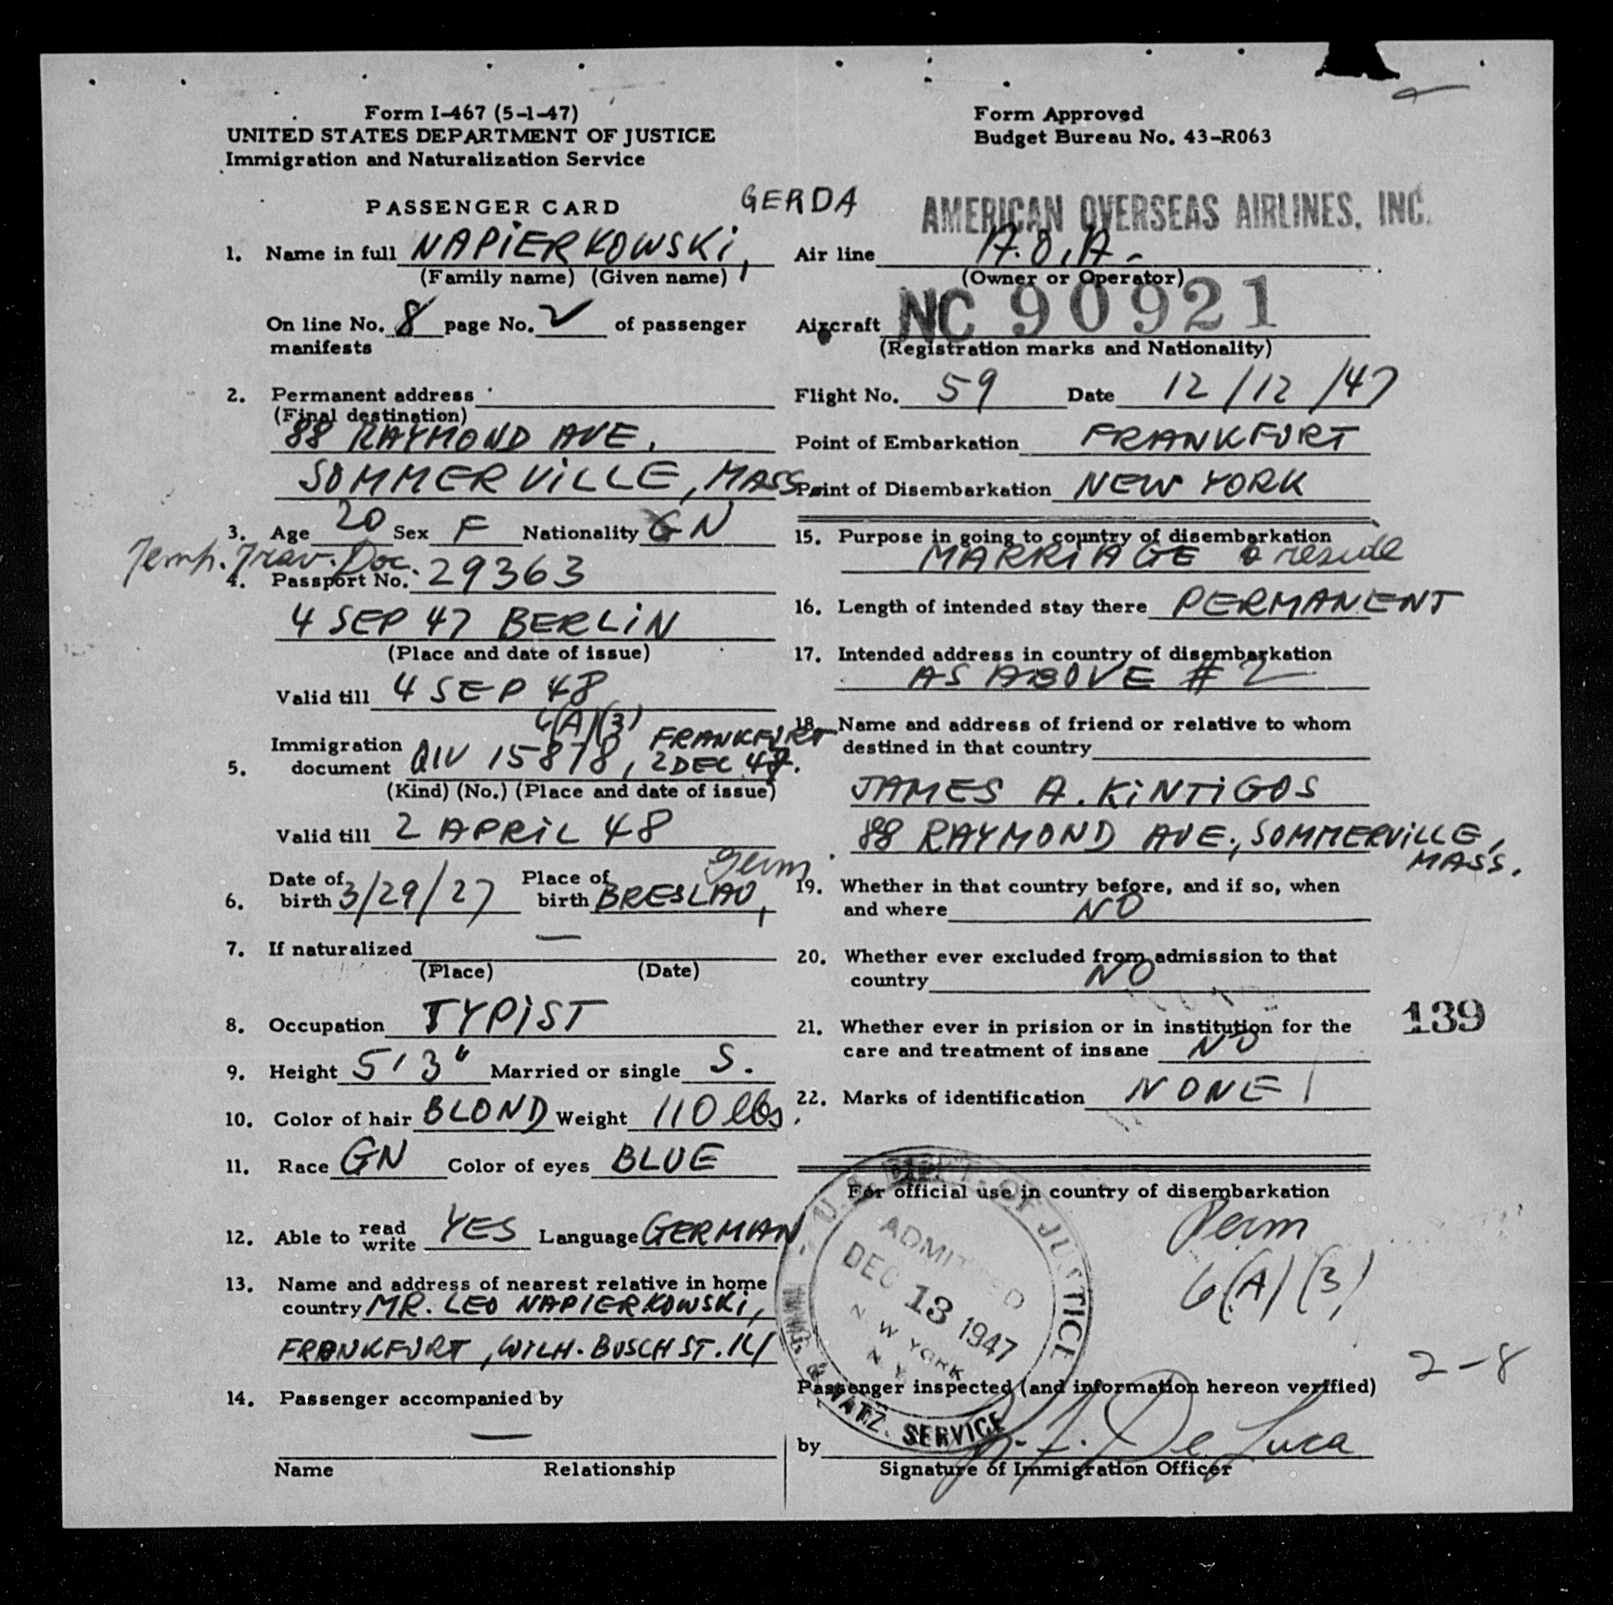 Form I-467 (5-1-47)
UNITED STATES DEPARTMENT OF JUSTICE
Immigration and Naturalization Service
Form Approved
Budget Bureau No. 43-R063
PASSENGER CARD
GERDA
1. Name in full NAPIERKOWSKI,
(Family name) (Given name)
On line No. 8 page No. 2 of passenger
manifests
2. Permanent address
(Final destination)
88 RAYMOND AVE.
SOMMERVILLE, MASS
3. Age 20 Sex F Nationality GN
Temp. Trav. Doc.
4. Passport No. 29363
4 SEP 47 BERLIN
(Place and date of issue)
Valid till 4 SEP 48
6(A)(3) FRANKFURT
5. Immigration document QIV 15878, 2 DEC 47.
(Kind) (No.) (Place and date of issue)
Valid till 2 APRIL 48
Germ.
6. Date of birth 3/29/27 Place of birth BRESLAU,
7. If naturalized —
(Place) (Date)
8. Occupation TYPIST
9. Height 5'3" Married or single S.
10. Color of hair BLOND Weight 110 lbs.
11. Race GN Color of eyes BLUE
12. Able to read write YES Language GERMAN
13. Name and address of nearest relative in home
country MR. LEO NAPIERKOWSKI,
FRANKFURT, WILH. BUSCH ST.
14. Passenger accompanied by
—
Name Relationship
AMERICAN OVERSEAS AIRLINES, INC.
Air line A.O.A.
(Owner or Operator)
Aircraft NC 90921
(Registration marks and Nationality)
Flight No. 59 Date 12/12/47
Point of Embarkation FRANKFURT
Point of Disembarkation NEW YORK
15. Purpose in going to country of disembarkation
MARRIAGE & reside
16. Length of intended stay there PERMANENT
17. Intended address in country of disembarkation
AS ABOVE # 2
18. Name and address of friend or relative to whom
destined in that country
JAMES A. KINTIGOS
88 RAYMOND AVE., SOMMERVILLE,
MASS.
19. Whether in that country before, and if so, when
and where NO
20. Whether ever excluded from admission to that
country NO
21. Whether ever in prision or in institution for the
care and treatment of insane NO
139
22. Marks of identification NONE
For official use in country of disembarkation
U.S. DEPT. OF JUSTICE
ADMITTED
DEC 13 1947
NEW YORK
N.Y.
IMMIG. & NATZ. SERVICE
Perm
6(A)(3)
2-8
Passenger inspected (and information hereon verified)
by De Luca
Signature of Immigration Officer